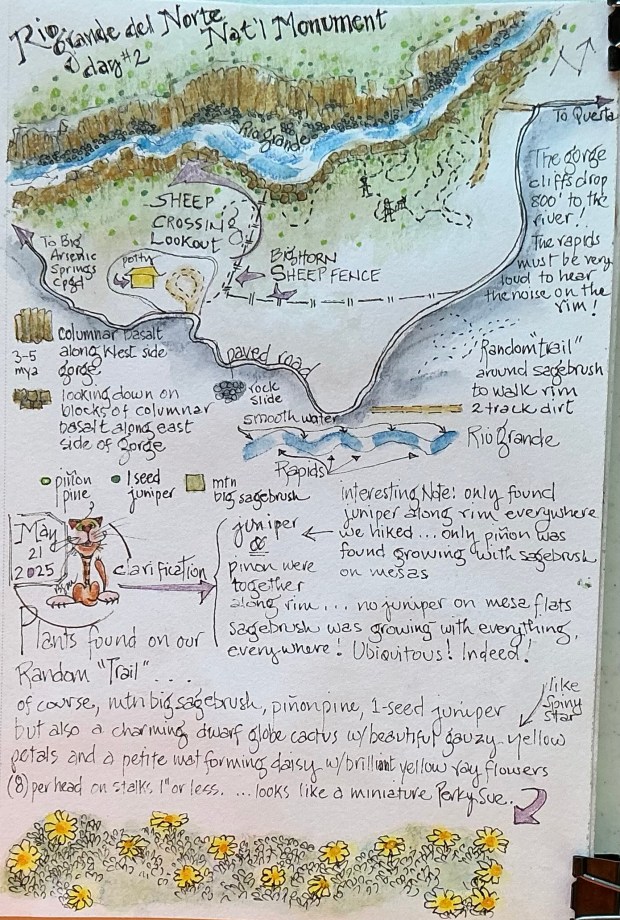 Rio grande del Norte Nat'l Monument
day #2
Rio grande
To Questa
The gorge
cliffs drop
800' to the
river!
The rapids
must be very
loud to hear
the noise on the
rim!
SHEEP
CROSSING
LOOKOUT
To Big
Arsenic
Springs
cpgd
potty
BIGHORN
SHEEP FENCE
3-5
mya
columnar basalt
along West side
gorge
looking down on
blocks of columnar
basalt along east
side of gorge
paved road
rock
slide
Random "trail"
around sagebrush
to walk rim
2 track dirt
smooth water
Rio Grande
Rapids
piñon
pine
1 seed
juniper
mtn
big sagebrush
May
21
2025
clarification
juniper
&
pinon were
together
along rim... no juniper on mesa flats
sagebrush was growing with everything,
everywhere! Ubiquitous! Indeed!
interesting Note: only found
juniper along rim everywhere
we hiked... only piñon was
found growing with sagebrush
on mesas
Plants found on our
Random "Trail"...
of course, mtn big sagebrush, piñon pine, 1-seed juniper
but also a charming dwarf globe cactus w/beautiful gauzy yellow
petals and a petite mat forming daisy w/brilliant yellow ray flowers
(8) per head on stalks 1" or less. ...looks like a miniature Perky Sue.
like
Spiny
Star